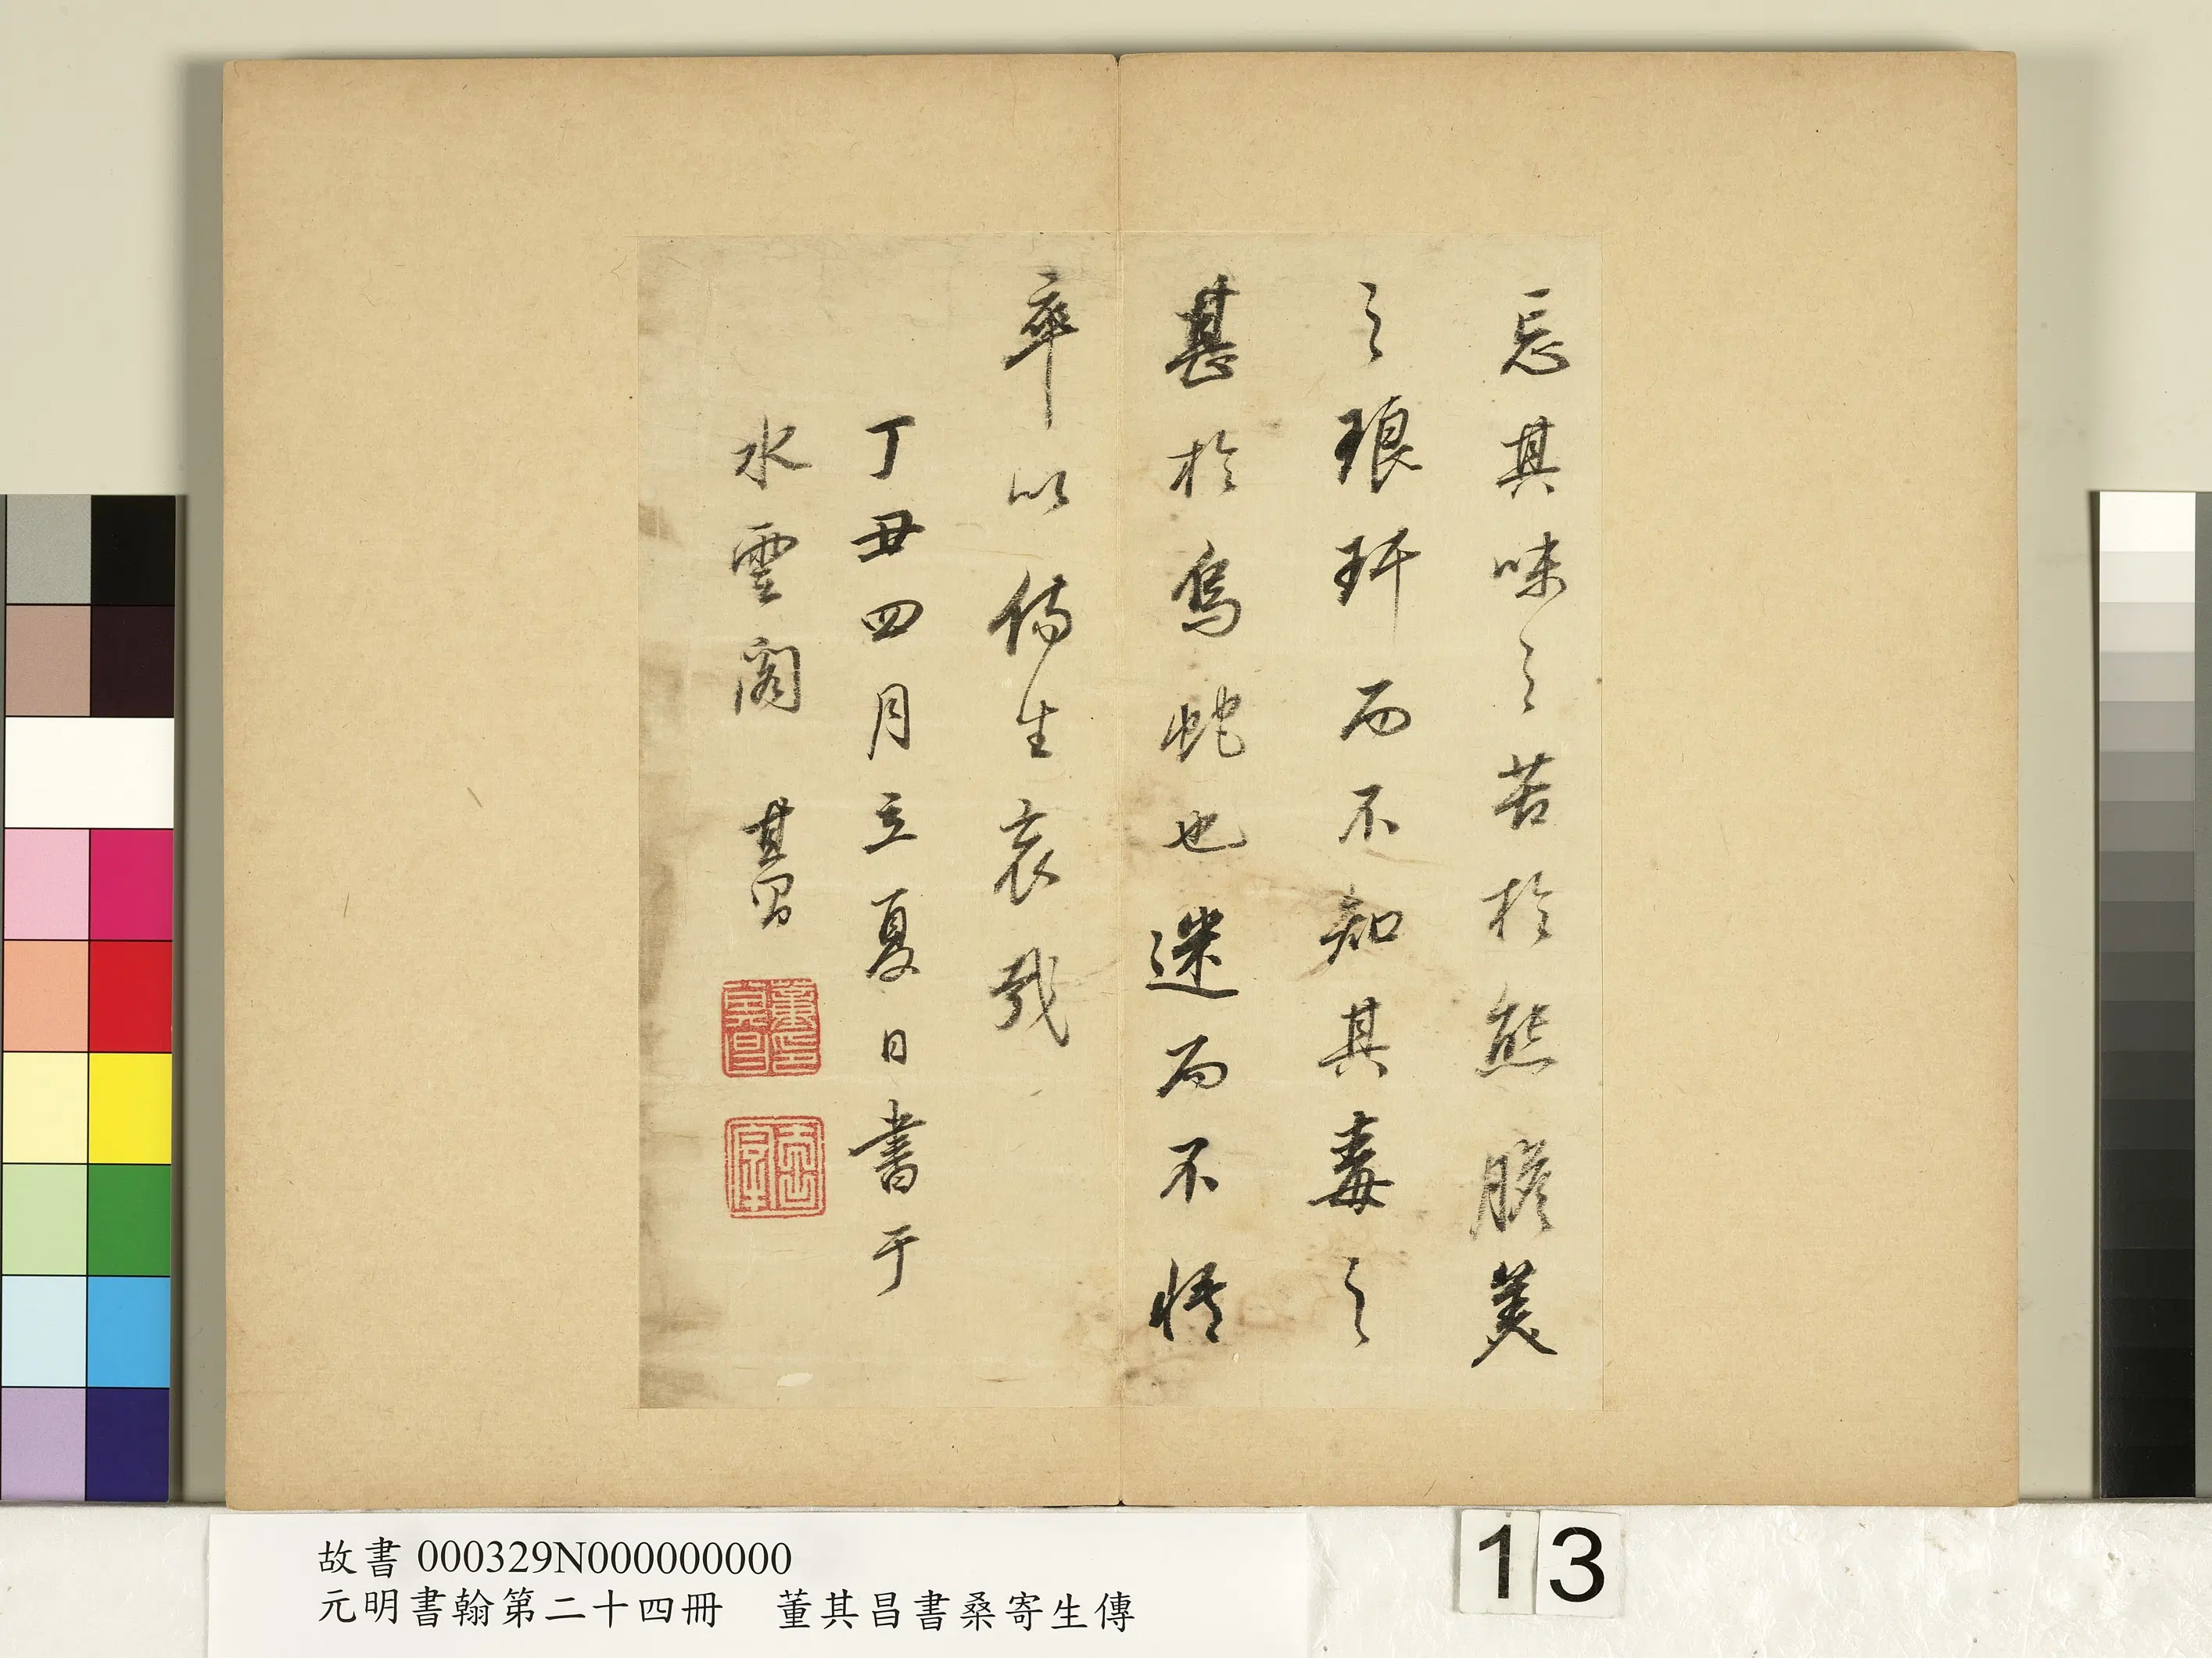 忘其味之苦於熊膽美
之琅玕而不知其毒之
甚於烏蛇也迷而不悟
卒以傷生哀哉
丁丑四月立夏日書于
水雲閣 其昌
故書 000329N000000000
元明書翰第二十四冊 董其昌書桑寄生傳
13